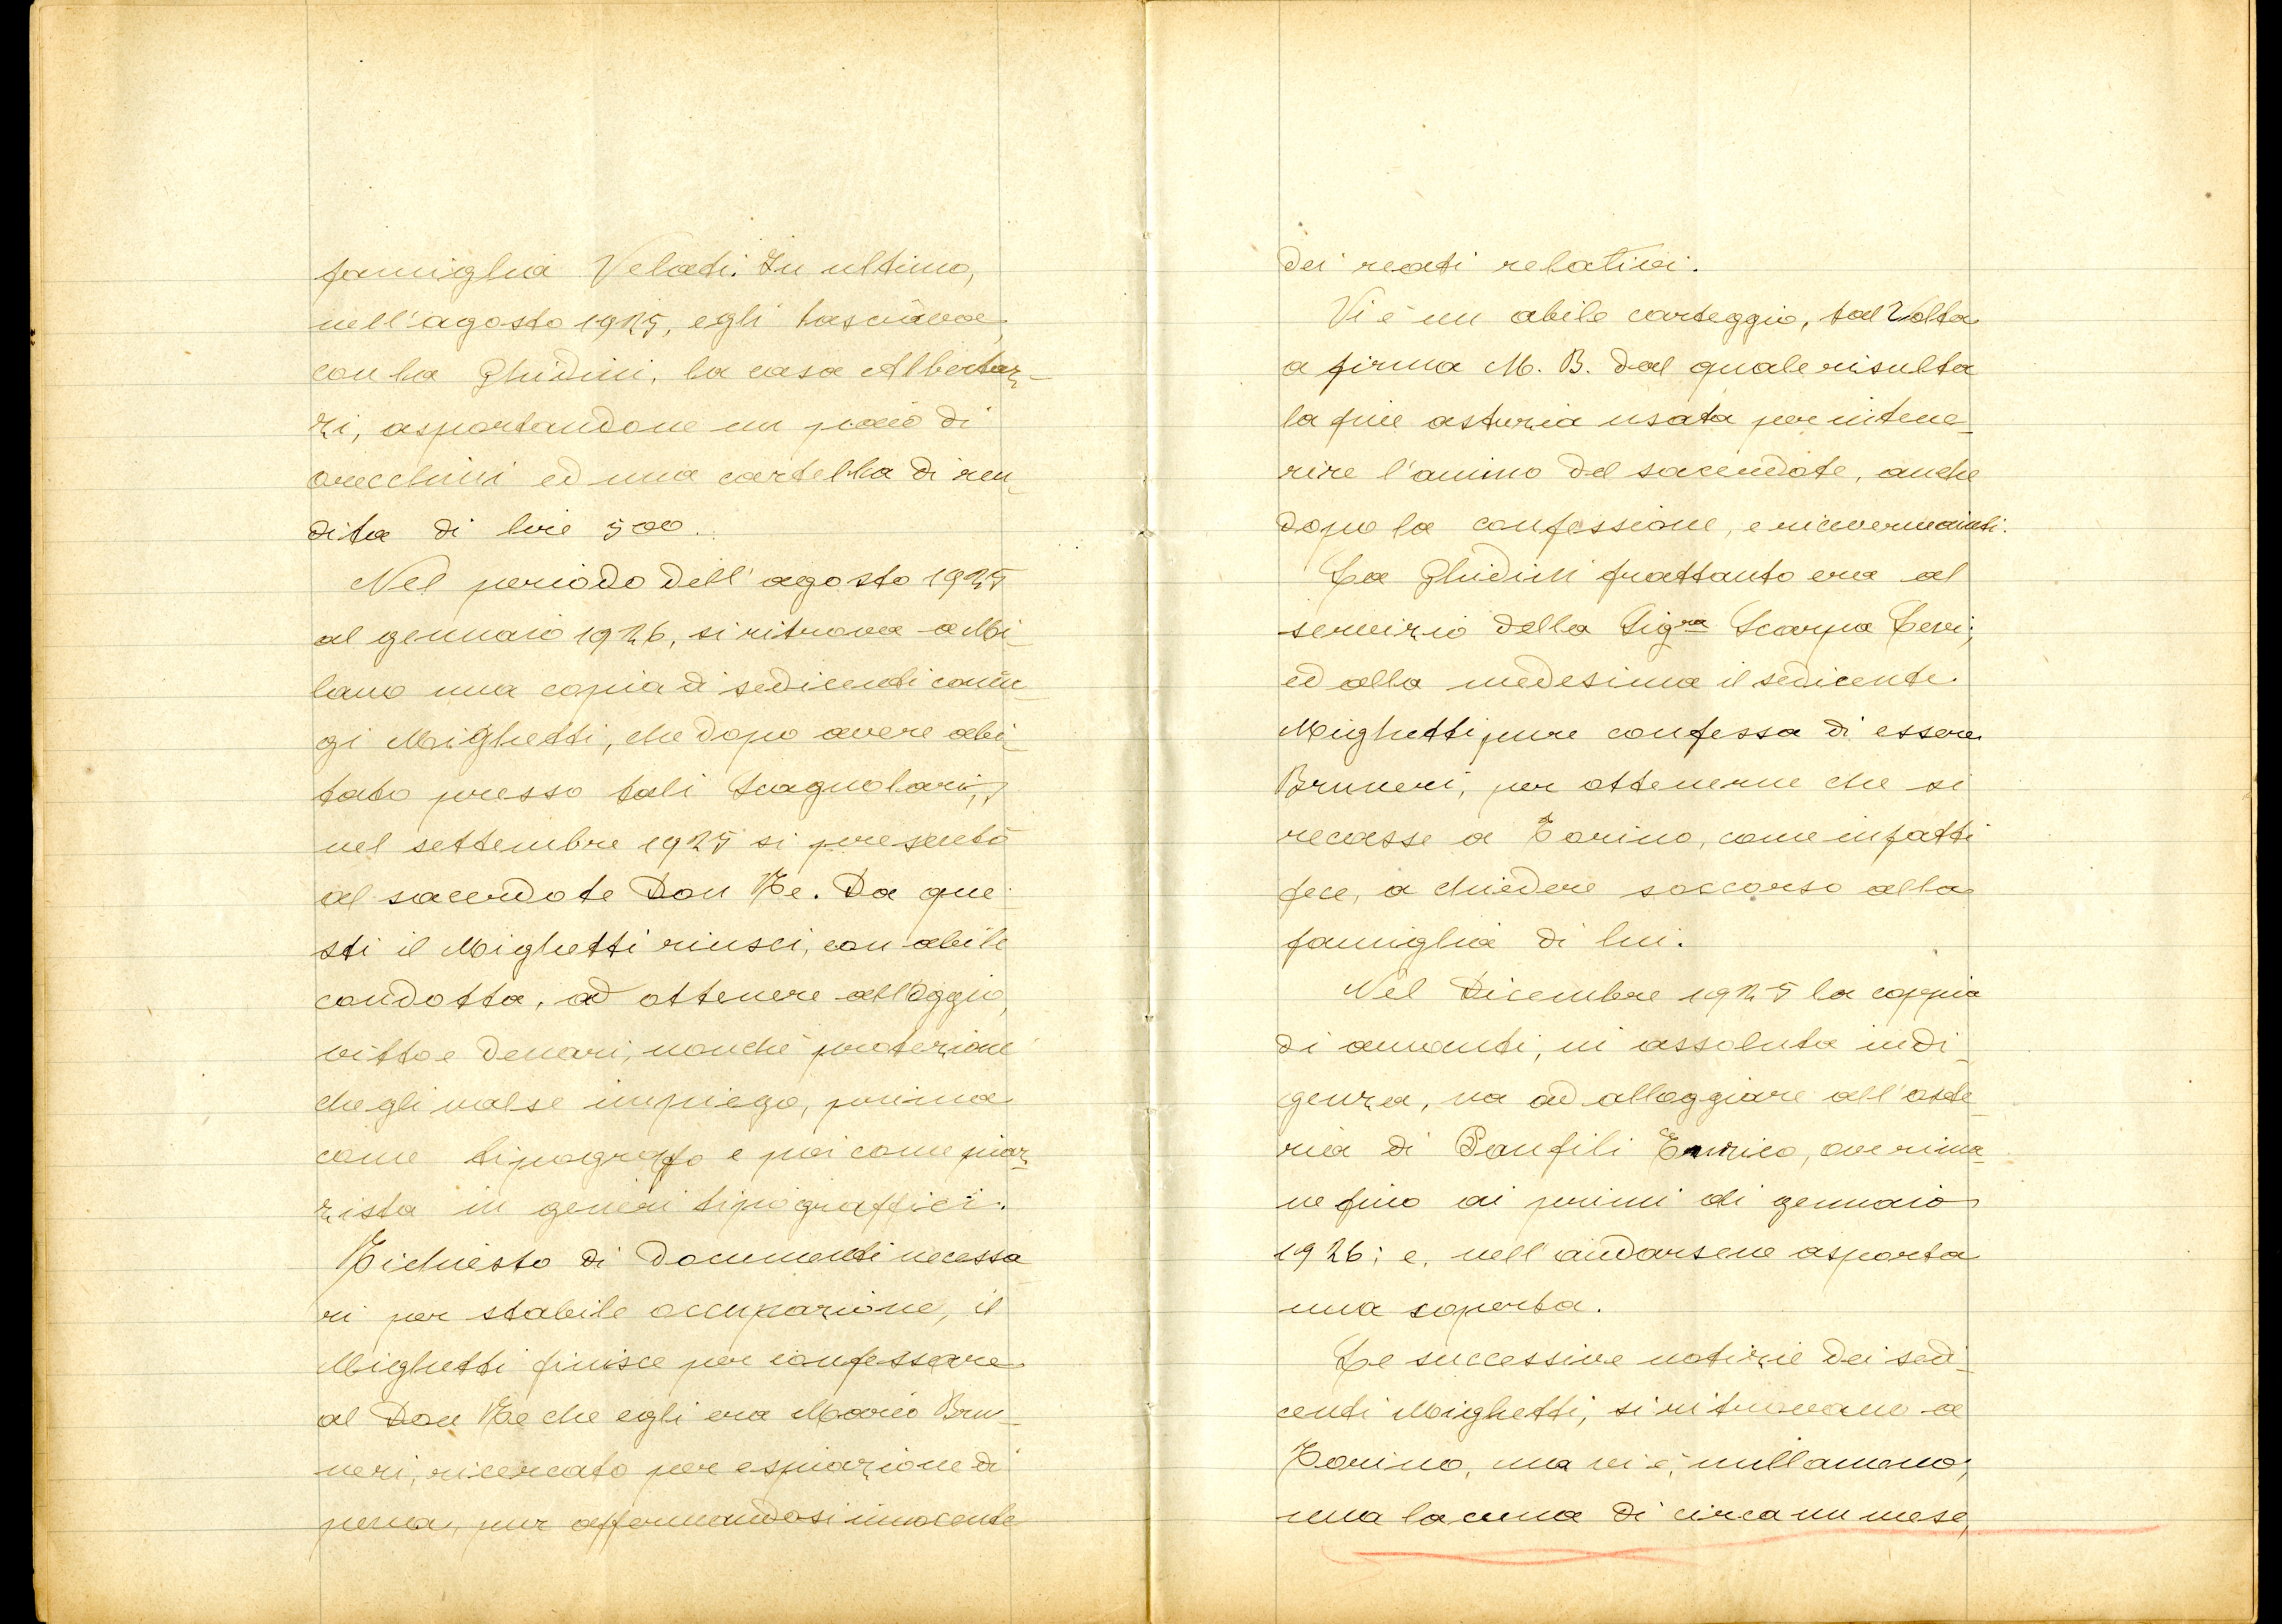 famiglia Velati. In ultimo,
nell'agosto 1925, egli lasciava,
con la Ghidini, la casa Albertaz-
zi, asportandone un paio di
orecchini ed una cartella di ren-
dita di lire 500.
Nel periodo dell'agosto 1925
al gennaio 1926, si ritrova a Mi-
lano una copia di sedicenti coniu-
gi Mighetti, che dopo avere abi-
tato presso tali Scagnolari,
nel settembre 1925 si presentò
al sacerdote Don Re. Da que-
sti il Mighetti riuscì, con abile
condotta, ad ottenere alloggio,
vitto e denari, nonchè protezione
che gli valse impiego, prima
come tipografo e poi come piaz-
zista in generi tipograffici.
Richiesto di documenti necessa
ri per stabile occupazione, il
Mighetti finisce per confessare
al Don Re che egli era Mario Bru-
neri, ricercato per espiazione di
pena, pur affermandosi innocente
dei reati relativi.
Vi è un abile carteggio, tal volta
a firma M. B. dal quale risulta
la fine astuzia usata per intene-
rire l'animo del sacerdote, anche
dopo la confessione, e ricoverarvisi.
La Ghidini frattanto era al
servizio della Sigra Scarpa Levi;
ed alla medesima il sedicente
Mighetti pure confessa di essere
Bruneri, per ottenerne che si
recasse a Torino, come infatti
fece, a chiedere soccorso alla
famiglia di lui.
Nel Dicembre 1925 la coppia
di amanti, in assoluta indi-
genza, va ad alloggiare all'oste-
ria di Panfili Enrico, ove rima-
ne fino ai primi di gennaio
1926; e, nell'andarsene asporta
una coperta.
Le successive notizie dei sedi-
centi Mighetti, si ritrovano a
Torino, ma vi è, nullameno,
una lacuna di circa un mese,